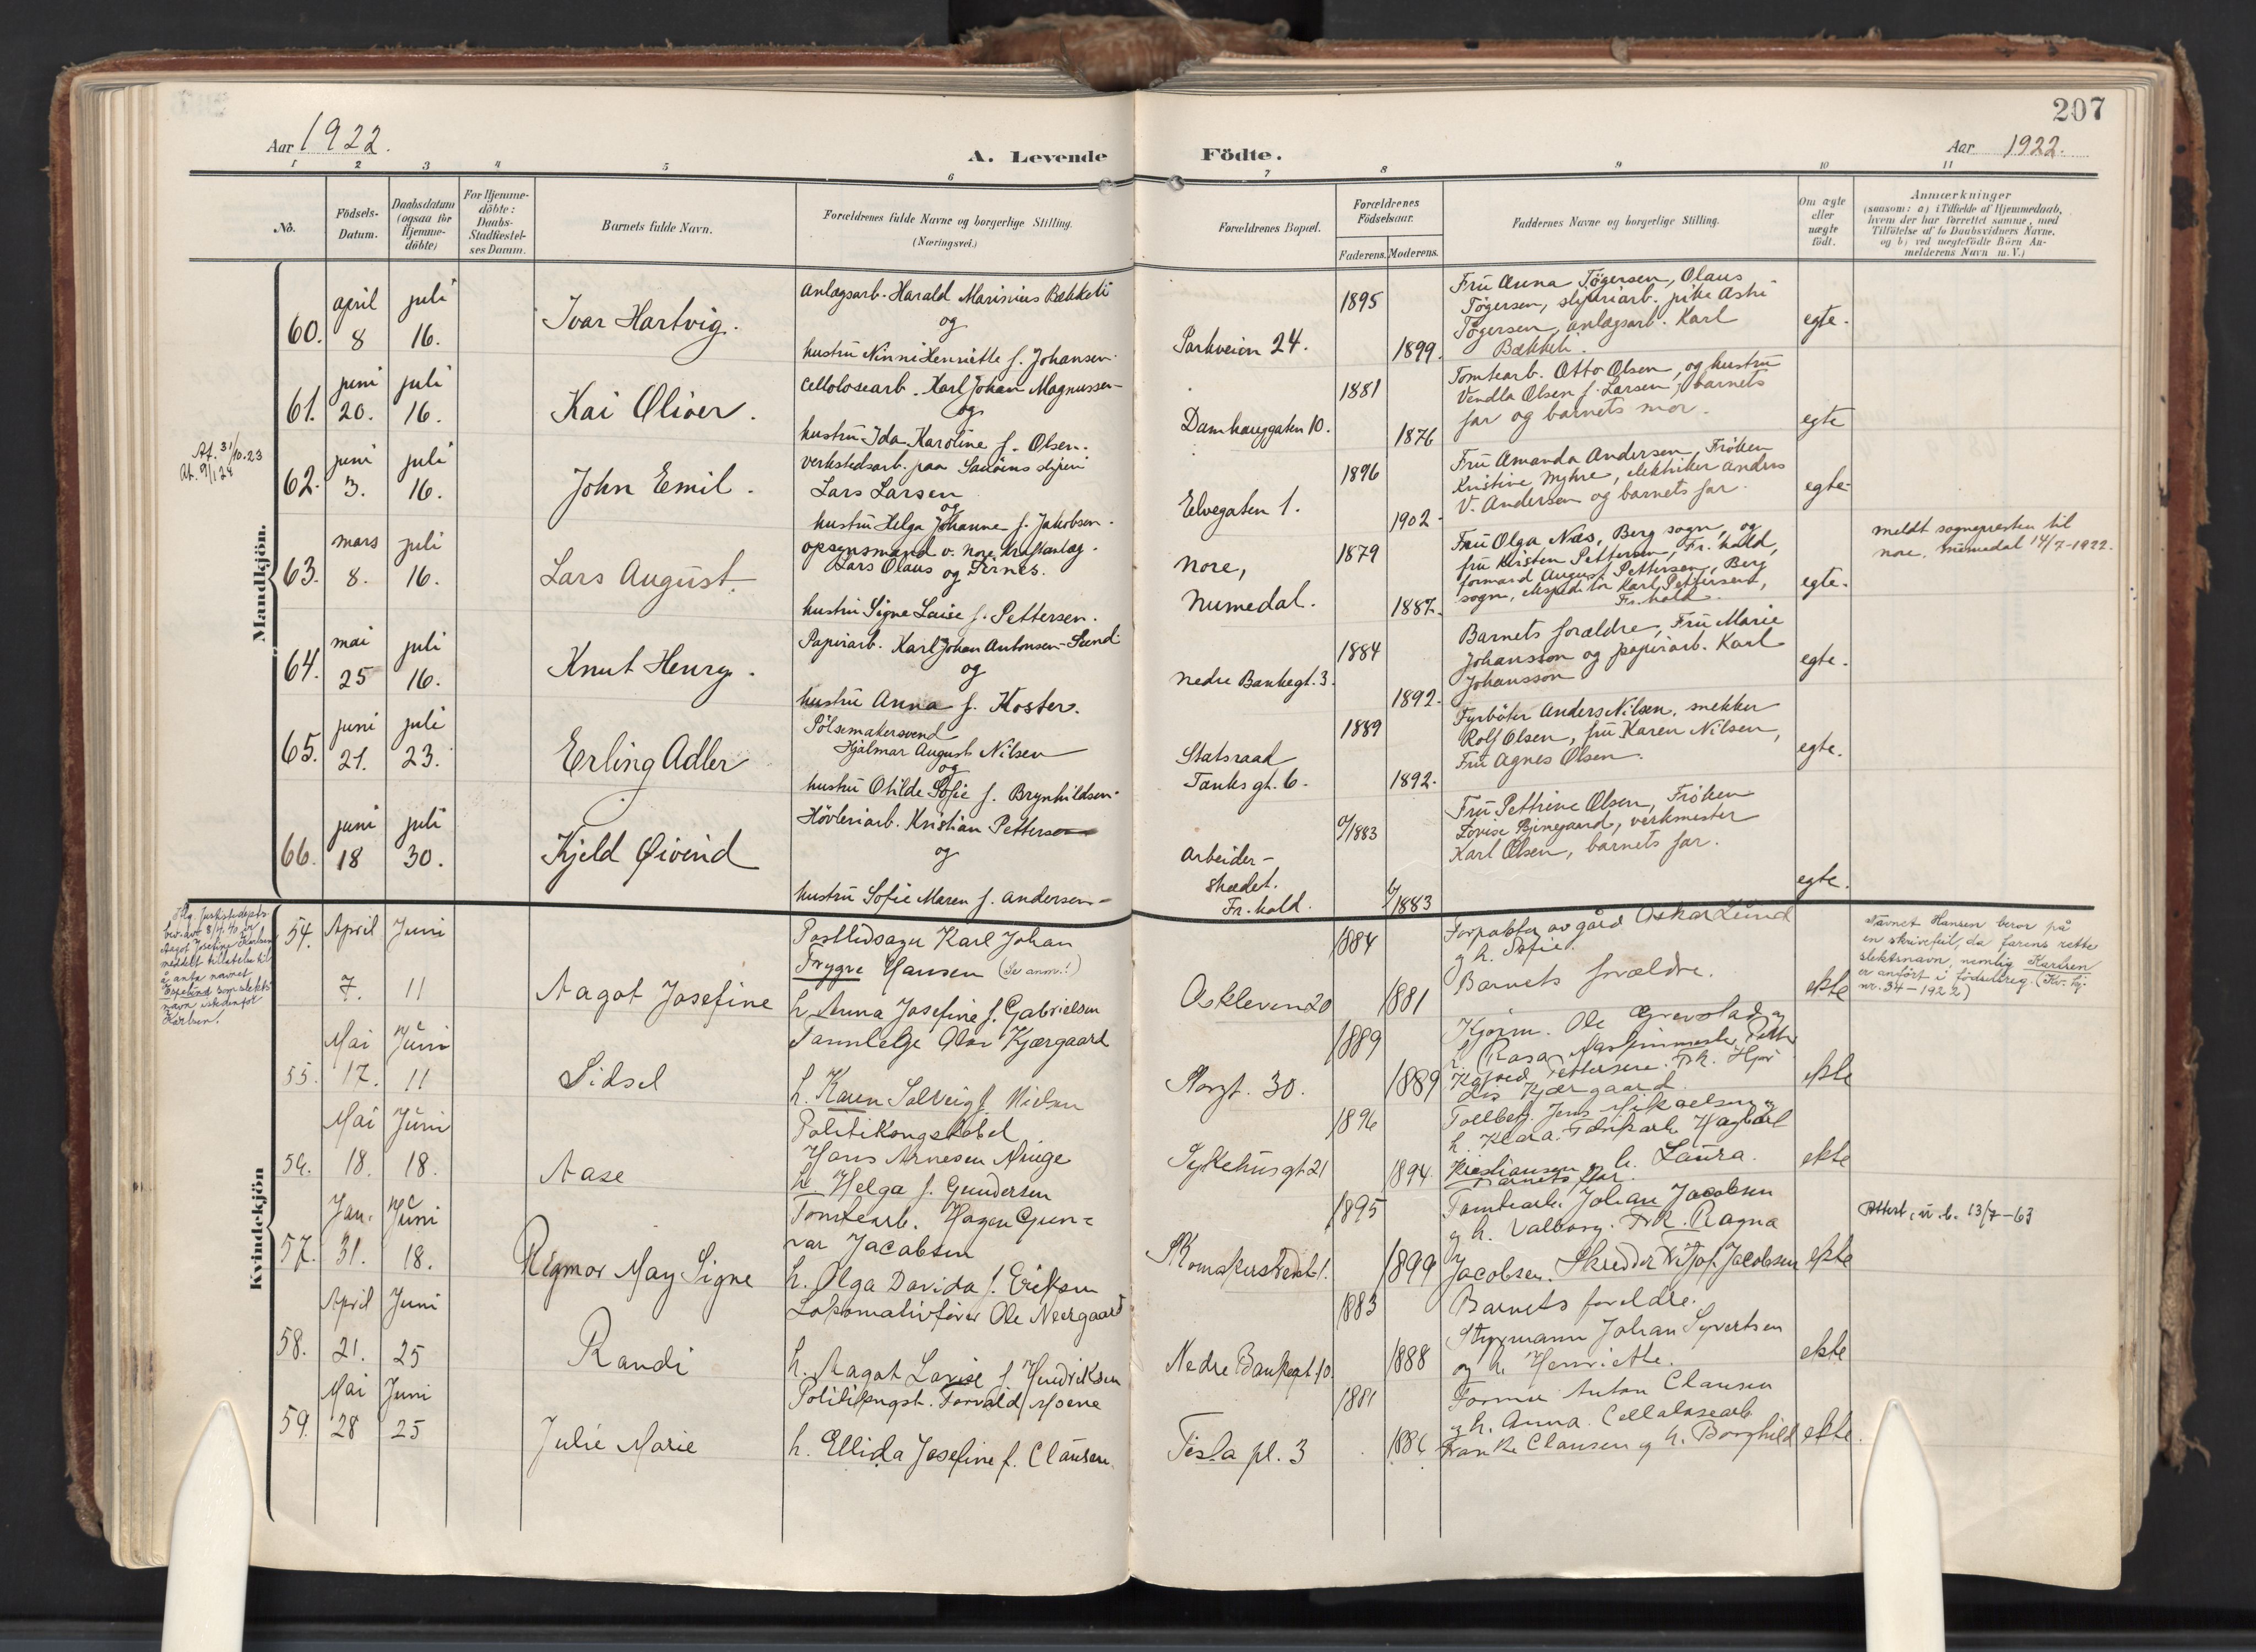 207
Aar 1922.
A. Levende
Födte.
Aar 1922.
1 2 3 4 5 6 7 8 9 10 11
No.
Födsels-
Datum.
Daabsdatum
(ogsaa for
Hjemme-
döbte)
For Hjemme-
döbte:
Daabs-
Stadfæstel-
ses Datum.
Barnets fulde Navn.
Forældrenes fulde Navne og borgerlige Stilling.
(Næringsvei.)
Forældrenes Bopæl.
Forældrenes
Födselsaar.
Faderens. Moderens.
Faddernes Navne og borgerlige Stilling.
Om ægte
eller
uægte
födt.
Anmærkninger
(saasom: a) i Tilfælde af Hjemmedaab,
hvem der har forrettet samme, med
Tilföielse af to Daabsvidners Navne,
og b) ved uægtefödte Börn An-
melderens Navn m. V.)
Mandkjön.
60.
april
8
juli
16.
Ivar Hartvig.
anlægsarb. Harald Marinius Bækkeli
og
hustru Ninni Henriette f. Johansen.
Parkveien 24.
1895
1899.
Fru Anna Tögersen, Olaus
Tögersen, sliperiarb. pike
Tögersen, anlægsarb. Karl
Bækkeli.
egte.
61.
juni
20.
juli
16.
Kai Oliver.
Cellulosearb. Karl Johan Magnussen
og
hustru Ida Karoline f. Olsen.
Damhauggaten 10.
1881
1876
Tomtearb. Otto Olsen, og hustru
Vendla Olsen f. Larsen, barnets
far og barnets mor.
egte
At. 31/10.23
At. 9/1 24
62.
juni
3.
juli
16.
John Emil.
Verkstedsarb. paa
Lars Larsen
og
hustru Helga Johanne f. Jakobsen.
Elvegaten 1.
1896
1902.
Fru Amanda Andersen, Fröken
Kristine Myhre, elektriker Anders
V. Andersen og barnets far.
egte.
63.
mars
8.
juli
16.
Lars August.
opsynsmand v. Nore Kraftanlæg.
Lars Olaus Sernes.
og
hustru Signe Laise f. Pettersen.
Nore,
Numedal.
1879
1887.
Fru Olga Næs, Berg sogn, og
fru Kristen Pettersen, Fr.hald,
formand August Pettersen, Berg
sogn, ekspeditör Karl Pettersen,
Fr.hald.
egte.
meldt sognepresten til
Nore, Numedal 14/7-1922.
64.
mai
25
juli
16.
Knut Henry.
Papirarb. Karl Johan Antonsen-Sund
og
hustru Anna f. Koster.
Nedre Bankegt. 3.
1884
1892.
Barnets forældre, Fru Marie
Johansson og papirarb. Karl
Johansson
egte.
65.
juni
21.
juli
23.
Erling Adler
Pölsemakersvend
Hjalmar August Nilsen
og
hustru Otilde Sofie f. Brynhildsen.
Statsraad
Tanks gt. 6.
1889
1892.
Fyrböter Anders Nilsen, snekker
Rolf Olsen, fru Karen Nilsen,
Fru Agnes Olsen.
egte.
66.
juni
18
juli
30.
Kjeld Øivind
Hövleriarb. Kristian Petterson
og
hustru Sofie Maren f. Andersen
Arbeider-
stedet.
Fr.hald.
1883
1883
Fru Pettrine Olsen, Fröken
Lovise Bjinegaard, verkmester
Karl Olsen, barnets far.
egte.
Kvindekjön
Aagot Josefine Karlsen
meddelt tillatelse til
å anta navnet
Espelund som slekts-
navn istedenfor
Karlsen.
54.
April
7.
Juni
11
Aagot Josefine
Postbudsager Karl Johan
Trygve Hansen (Se anm.!)
h. Anna Josefine f. Gabrielsen
Askleven 20
1884
1881
Forpakter av gård Oskar Lund
og h. Sofie.
Barnets forældre.
ekte
Navnet Hansen beror på
en skrivefeil, da farens rette
slektsnavn, nemlig Karlsen
er anfört i födselsreg. (Kv. kj.
nr. 34-1922)
55.
Mai
17.
Juni
11
Sidsel
Tannlæge Olav Kjærgaard
h. Karen Solveig f. Nielsen
Storgt. 30.
1889
1889
Kjöpm. Ole Grevstad og
h. Rosa. Maskinmester Petter
Pettersen. Frk.
Lis Kjærgaard.
ekte
56.
Mai
18.
Juni
18.
Aase
Politikonstabel
Hans Arnesen Ringe
h. Helga f. Gundersen
Sykehusgt 21
1896
1894.
Tollbetj. Jens Mikaelsen og
h. Klara. Fabrikarb. Hagbart
Kristiansen og h. Laura.
Barnets far.
ekte
57.
Jan.
31.
Juni
18.
Rigmor May Signe
Tomtearb. Hagen Gun-
nar Jacobsen
h. Olga Davida f. Eriksen
Skomakerstredet 1.
1895
1899
Tomtearb. Johan Jacobsen
og h. Valborg. Frk. Ragna
Jacobsen. Skredder Fritjof Jacobsen
ekte
Attest. u. b. 13/7-63
58.
April
21.
Juni
25
Randi
Lokomotivförer Ole Neergaard
h. Aagot Lovise f. Hendriksen
Nedre Bankegt. 10.
1883
1888
Barnets foreldre.
Styrmann Johan Syvertsen
og h. Henriette.
ekte
59.
Mai
28
Juni
25
Julie Marie
Politikonst. Torvald Moene
h. Ellida Josefine f. Clausen.
Tista pl. 3
1881
1886
Formann Anton Clausen
og h. Anna. Cellulosearb.
Franke Clausen og h. Borghild
ekte.